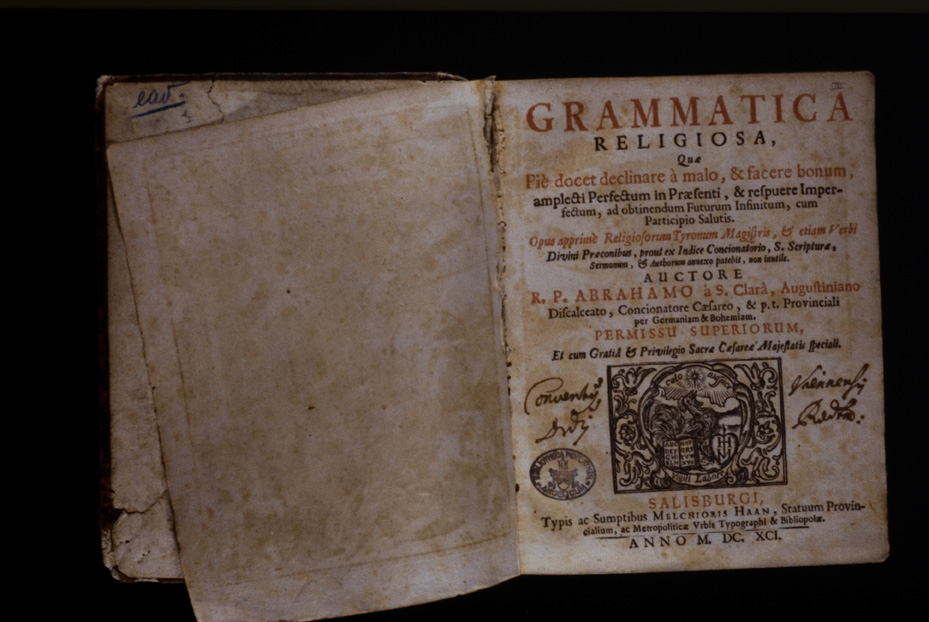 ead.
GRAMMATICA
RELIGIOSA,
Quæ
Piè docet declinare à malo, & facere bonum,
amplecti Perfectum in Præsenti, & respuere Imper-
fectum, ad obtinendum Futurum Infinitum, cum
Participio Salutis.
Opus apprimè Religiosorum Tyronum Magistris, & etiam Verbi
Divini Præconibus, prout ex Indice Concionatorio, S. Scripturæ,
Sermonum, & Authorum annexo patebit, non inutile.
AUCTORE
R. P. ABRAHAMO à S. Clarâ, Augustiniano
Discalceato, Concionatore Cæsareo, & p. t. Provinciali
per Germaniam & Bohemiam.
PERMISSU SUPERIORUM,
Et cum Gratiâ & Privilegio Sacræ Cæsareæ Majestatis speciali.
Conventus
Viennensis
SALISBURGI,
Typis ac Sumptibus MELCHIORIS HAAN, Statuum Provin-
cialium, ac Metropoliticæ Urbis Typographi & Bibliopolæ.
ANNO M. DC. XCI.